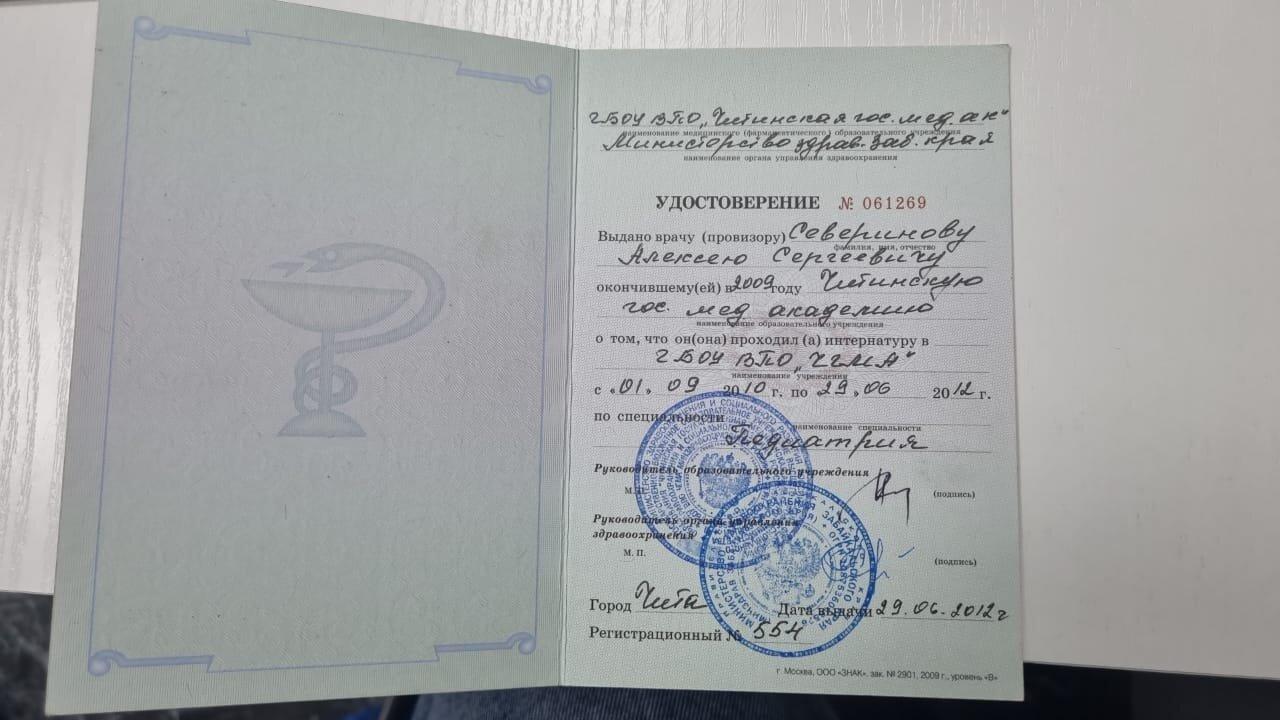 ГБОУ ВПО „Читинская гос. мед. ак"
наименование медицинского (фармацевтического) образовательного учреждения
Министерство здрав. Заб. края
наименование органа управления здравоохранения
УДОСТОВЕРЕНИЕ № 061269
Выдано врачу (провизору) Северинову
фамилия, имя, отчество
Алексею Сергеевичу
окончившему(ей) в 2009 году Читинскую
гос. мед академию
наименование образовательного учреждения
о том, что он(она) проходил (а) интернатуру в
ГБОУ ВПО „ЧГМА"
наименование учреждения
с «01» 09 2010 г. по 29 » 06 2012 г.
по специальности
наименование специальности
Педиатрия
Руководитель образовательного учреждения
М.П.
(подпись)
Руководитель органа управления
здравоохранения
М. П.
(подпись)
Город Чита Дата выдачи 29.06.2012г
Регистрационный № 554
г. Москва, ООО «ЗНАК», зак. № 2901, 2009 г., уровень «В»